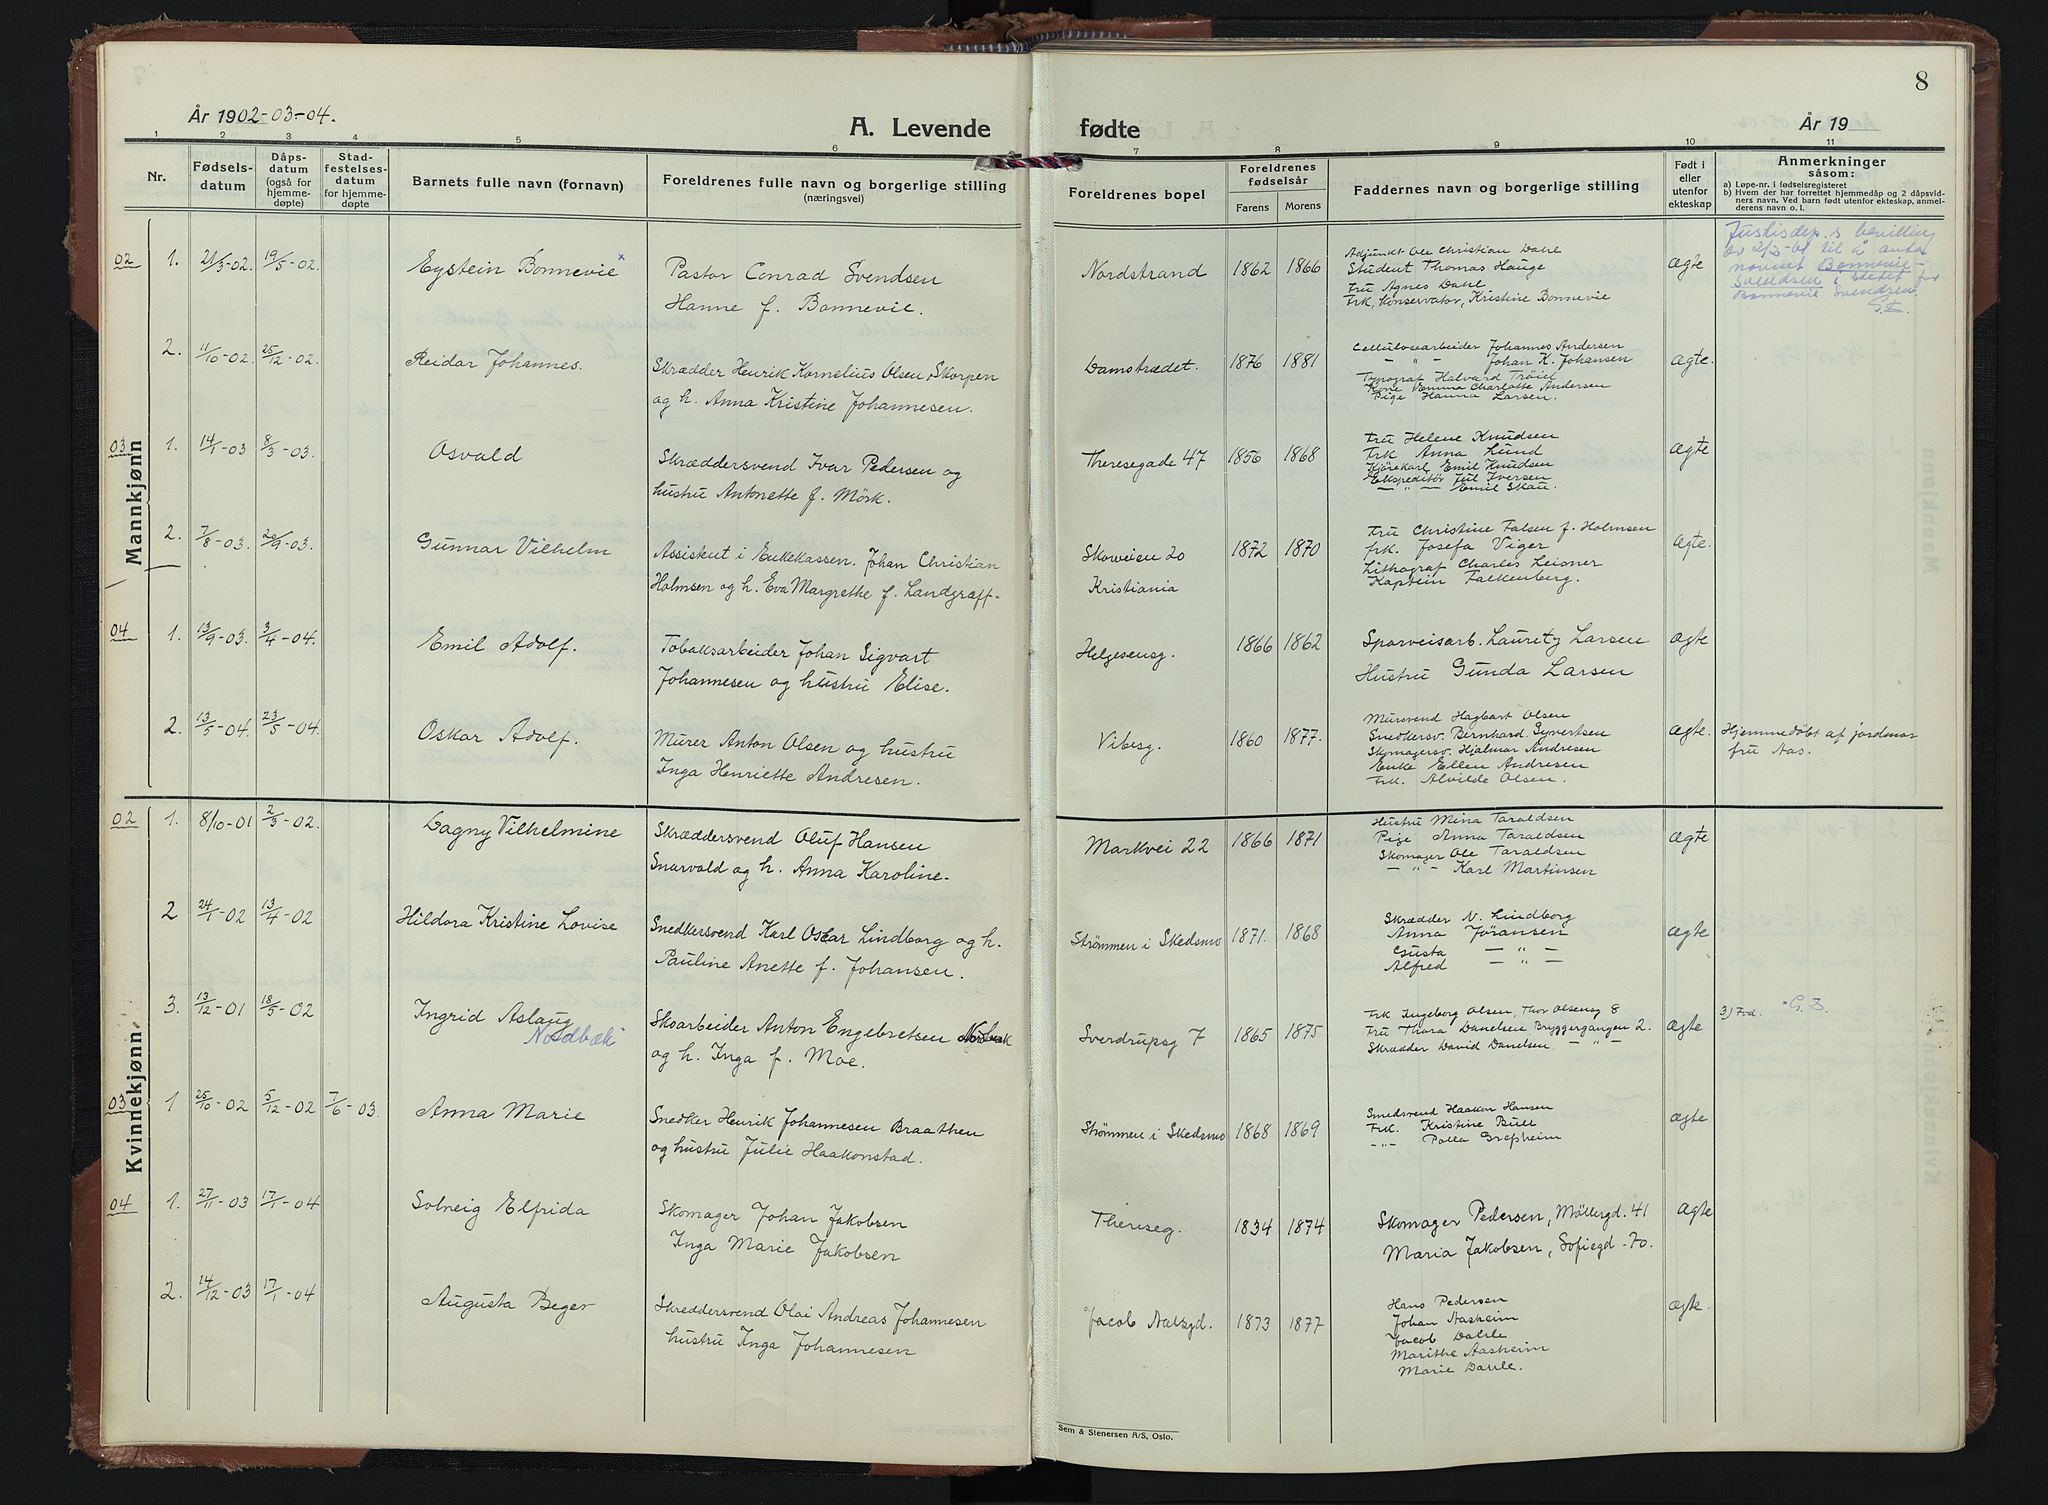 8
År 1902-03-04.
A. Levende
fødte
År 19
1 2 3 4 5 6 7 8 9 10 11
Nr.
Fødsels-
datum
Dåps-
datum
(også for
hjemme-
døpte)
Stad-
festelses-
datum
for hjemme-
døpte
Barnets fulle navn (fornavn)
Foreldrenes fulle navn og borgerlige stilling
(næringsvei)
Foreldrenes bopel
Foreldrenes
fødselsår
Farens Morens
Faddernes navn og borgerlige stilling
Født i
eller
utenfor
ekteskap
Anmerkninger
såsom:
a) Løpe-nr. i fødselsregisteret
b) Hvem der har forrettet hjemmedåp og 2 dåpsvid-
ners navn. Ved barn født utenfor ekteskap, anmel-
derens navn o. l.
Mannkjønn
02 1. 21/3-02. 19/5-02. Eystein Bonnevie x
Pastor Conrad Svendsen
Hanne f. Bonnevie.
Nordstrand 1862 1866
Adjunkt Ole Christian Dahl
Student Thomas Hauge
Fru Agnes Dahl
Frk. Konservator, Kristine Bonnevie
Ægte
Justisdep.s bevilling
av 2/3-61 til å anta
navnet Bonnevie-
Svendsen i stedet for
Bonnevie Svendsen.
2. 11/10-02. 25/12-02. Reidar Johannes.
Skrædder Henrik Kornelius Olsen Skorpen
og h. Anna Kristine Johannesen.
Damstrædet. 1876 1881
Cellulosearbeider Johannes Andersen
- " - Johan K. Johansen
Typograf Halvard Trøiel
Kone Emma Charlotte Andersen
Pige Hanna Larsen.
Ægte.
03 1. 14/1-03 8/3-03. Osvald
Skræddersvend Ivar Pedersen og
hustru Antonette f. Mörk.
Theresegade 47 1856 1868
Fru Helene Knudsen
Frk Anna Lund
Kjørekarl Emil Knudsen
Ekspeditör Jul Iversen
- " - Emil Skau.
Ægte
2. 7/8-03. 20/9-03. Gunnar Vilhelm
Assistent i Enkekassen. Johan Christian
Holmsen og h. Eva Margrethe f. Landgraff-
Skovveien 20
Kristiania
1872 1870
Fru Christine Falsen f. Holmsen
Frk. Josefa Viger
Lithograf Charles Leisner
Kaptein Falkenberg.
Ægte.
04 1. 13/9-03. 3/4-04. Emil Adolf.
Tobaksarbeider Johan Sigvart
Johannesen og hustru Elise.
Helgesensg. 1866 1862
Sporveisarb. Lauretz Larsen
Hustru Gunda Larsen
Ægte
2. 13/5-04. 23/5-04 Oskar Adolf.
Murer Anton Olsen og hustru
Inga Henriette Andresen.
Vibesg. 1860 1877.
Mursvend Hagbart Olsen
Snedkersv. Bernhard. Syvertsen
Skomagersv. Hjalmar Andresen
Enke Ellen Andresen
Frk. Alvilde Olsen.
Ægte.
Hjemmedöbt af jordmor
fru Aas.
Kvinnekjønn
02 1. 8/10-01 2/3-02. Dagny Vilhelmine
Skræddersvend Oluf Hansen
Snarvold og h. Anna Karoline-
Markvei 22 1866 1871
Hustru Mina Taraldsen
Pige Anna Taraldsen
Skomager Ole Taraldsen
- " - Karl Martinsen
Ægte
2 24/1-02 13/4-02 Hildora Kristine Lovise
Snedkersvend Karl Oscar Lindborg og h.
Pauline Anette f. Johansen.
Strømmen i Skedsmo 1871. 1868
Skrædder N. Lindborg
Anna Jöransen
Gusta - " -
Alfred - " -
Ægte
3. 13/12-01 18/5-02 Ingrid Aslaug
Nordbæk
Skoarbeider Anton Engebretsen Nordbæk
og h. Inga f. Moe.
Sverdrupsg 7 1865 1875
Frk Ingeborg Olsen, Thor Olsensg 8
Fru Thora Danelsen Bryggergangen 2.
Skrædder David Danelsen - " -
Ægte
03 1 25/10-02 5/12-02 7/6-03. Anna Marie
Snedker Henrik Johannesen Braathen
og hustru Julie Haakonstad.
Strømmen i Skedsmo 1868 1869
Smedsvend Haakon Hansen
Frk. Kristine Bull
-"-
Ægte
04 1. 27/11-03 17/1-04 Solveig Elfrida
Skomager Johan Jakobsen
Inga Marie Jakobsen
Thereseg. 1834 1874
Skomager Pedersen, Möllergd. 41
Maria Jakobsen, Sofiegd-70.
Ægte
2. 14/12-03 17/1-04 Augusta Beger
Skreddersvend Olai Andreas Johannesen
hustru Inga Johannesen
Jacob Aalsgd. 1873 1877
Hans Pedersen
Johan Aasheim
Jacob Dahle
Marithe Aasheim
Marie Dahle.
Ægte.
Sem & Stenersen A/S, Oslo.